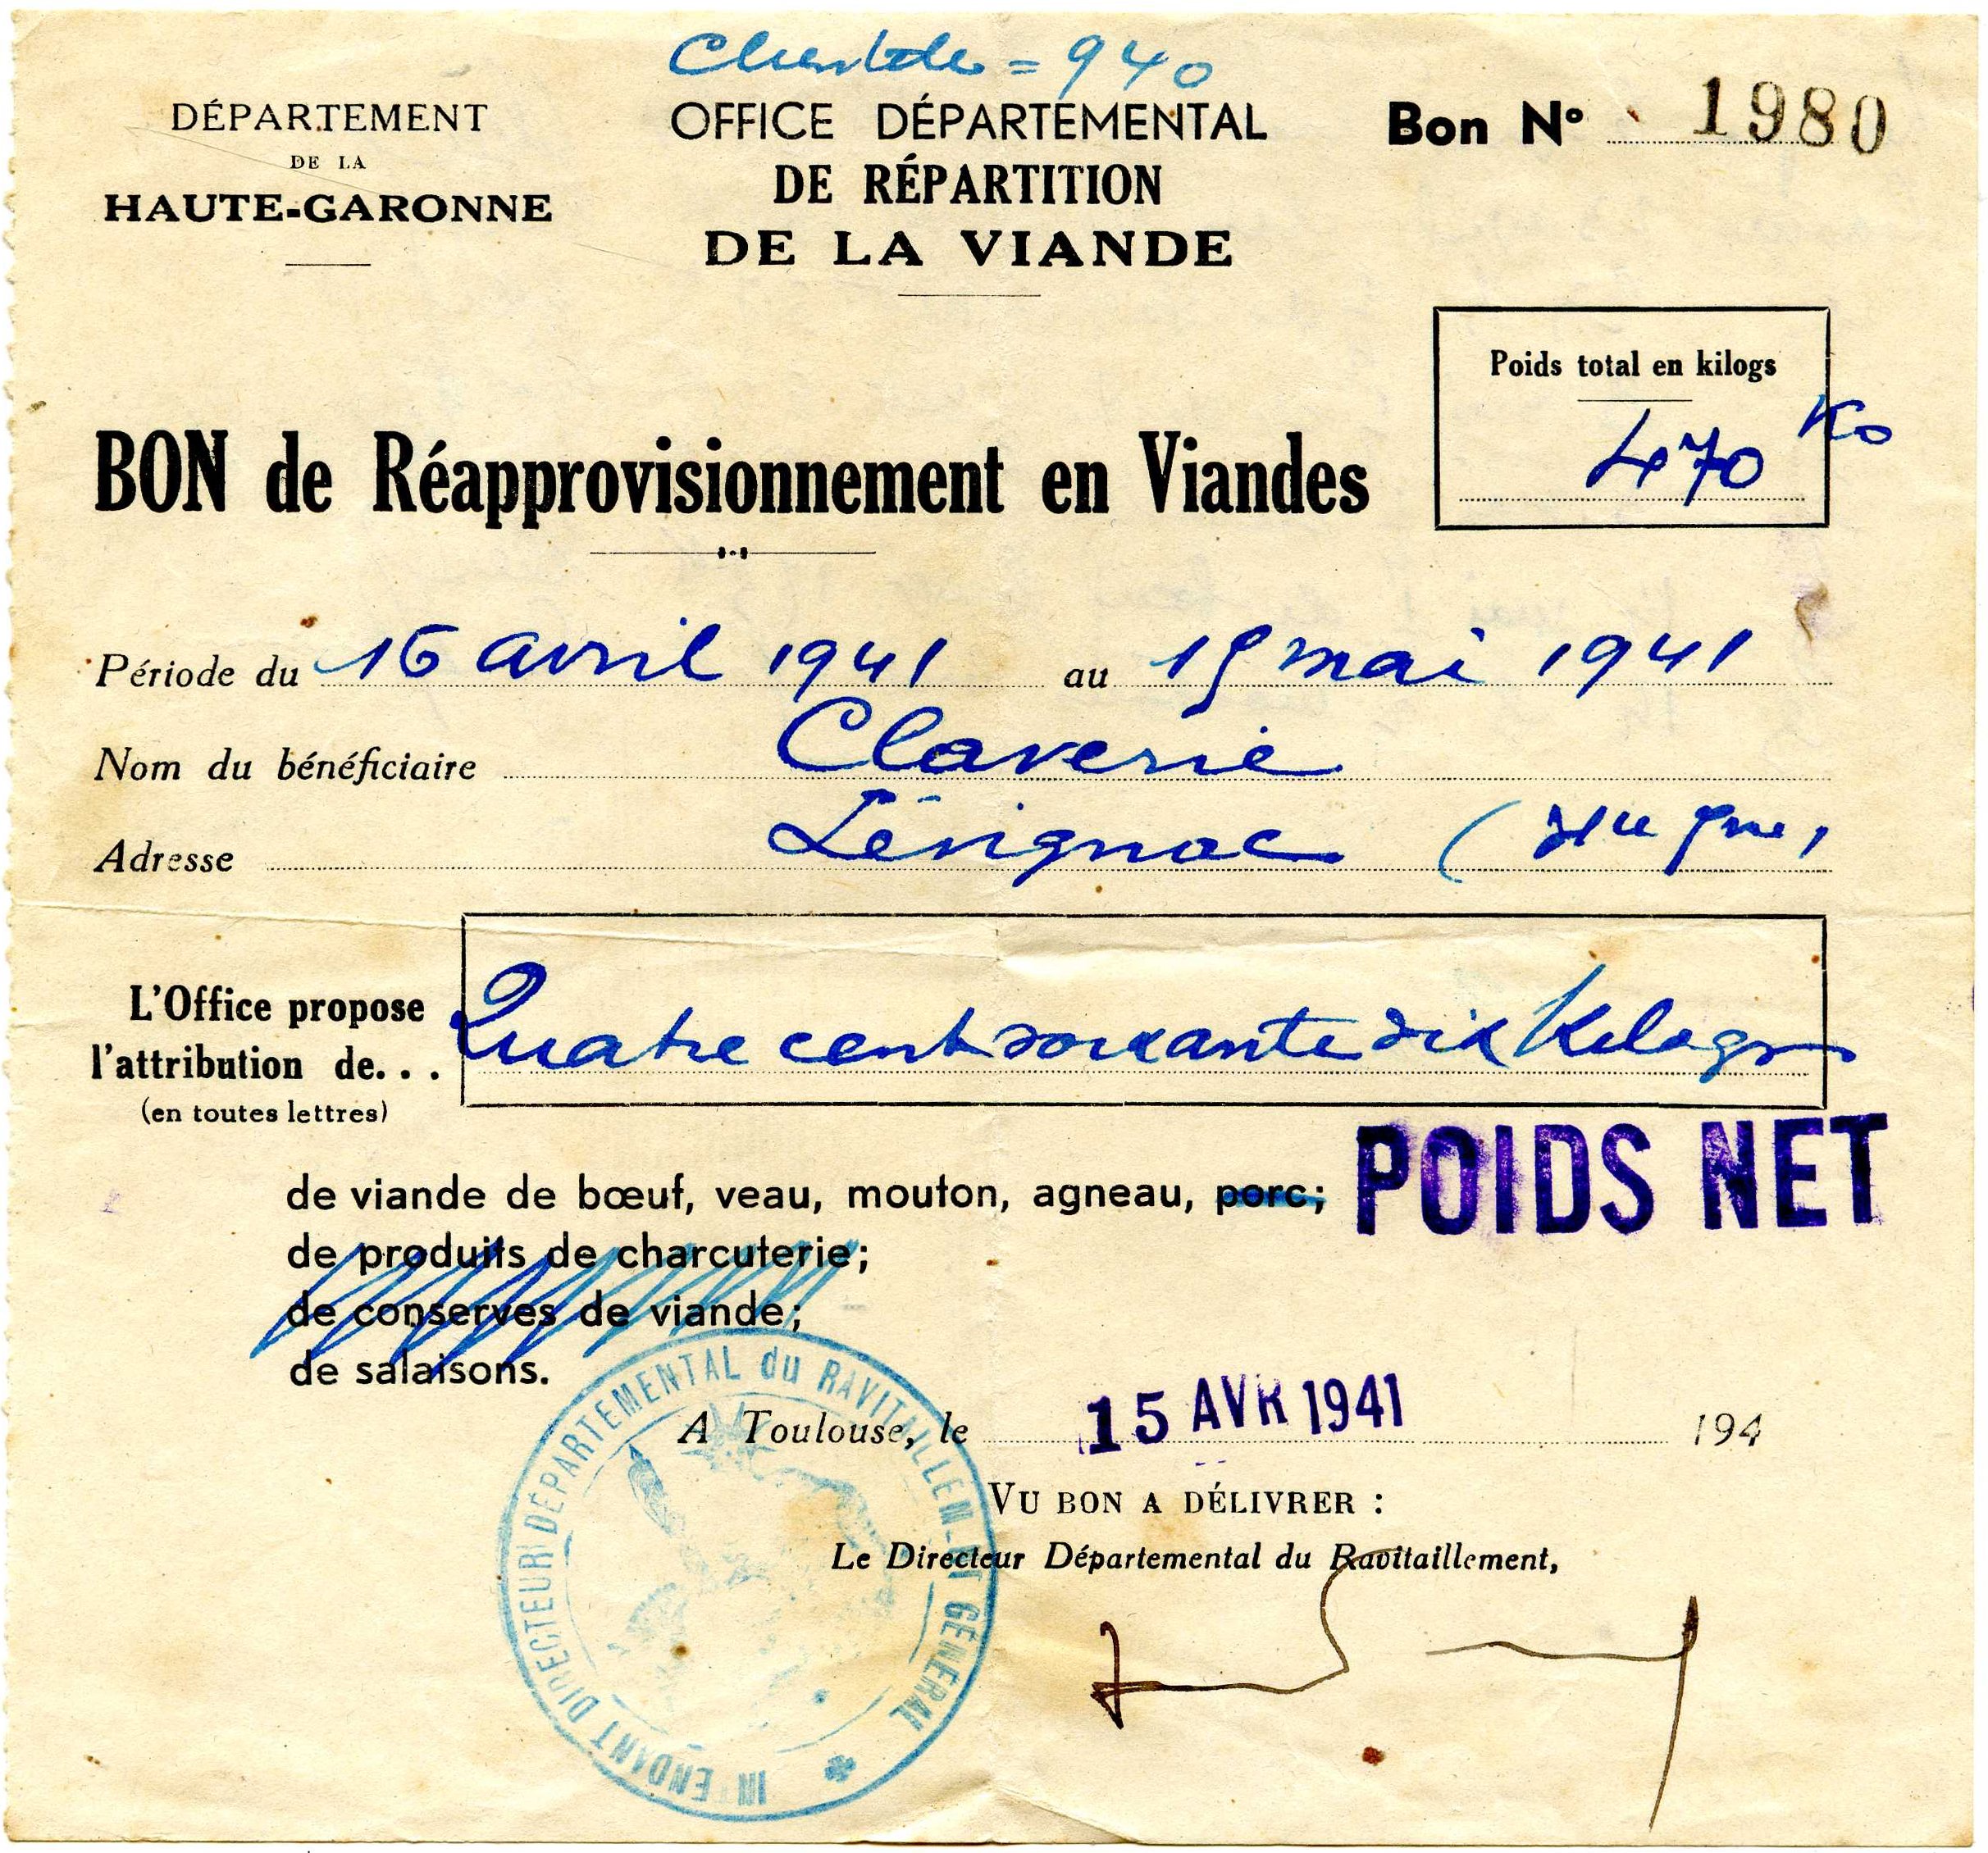 Clientèle = 940
DÉPARTEMENT
DE LA
HAUTE-GARONNE
OFFICE DÉPARTEMENTAL
DE RÉPARTITION
DE LA VIANDE
Bon Nº 1980
Poids total en kilogs
470 Ko
BON de Réapprovisionnement en Viandes
Période du 16 avril 1941 au 15 mai 1941
Nom du bénéficiaire Claverie
Adresse Lévignac (Hte Gne)
L'Office propose
l'attribution de...
(en toutes lettres)
Quatre cent soixante dix Kilogr
POIDS NET
de viande de bœuf, veau, mouton, agneau, porc;
de produits de charcuterie;
de conserves de viande;
de salaisons.
A Toulouse, le 15 AVR 1941 194
VU BON A DÉLIVRER :
Le Directeur Départemental du Ravitaillement,
INTENDANT DIRECTEUR DÉPARTEMENTAL du RAVITAILLEMENT GÉNÉRAL